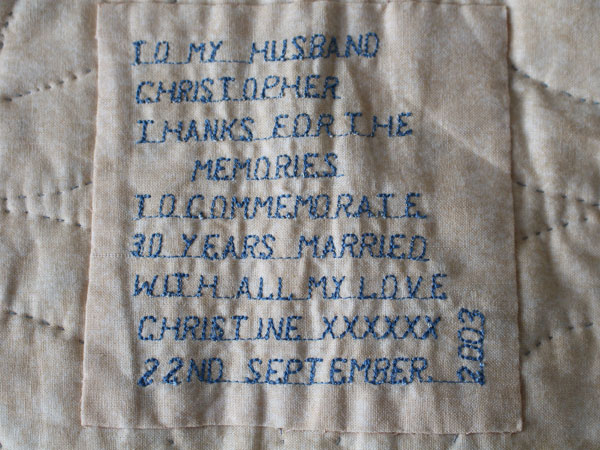 TO MY HUSBAND
CHRISTOPHER
THANKS FOR THE
MEMORIES
TO COMMEMORATE
30 YEARS MARRIED
WITH ALL MY LOVE
CHRISTINE XXXXXX
22ND SEPTEMBER
2003